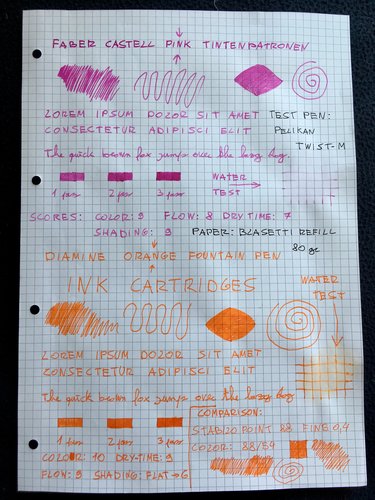 FABER CASTELL PINK TINTENPATRONEN
LOREM IPSUM DOLOR SIT AMET
CONSECTETUR ADIPISCI ELIT
TEST PEN:
PELIKAN
TWIST-M
The quick brown fox jumps over the lazy dog.
WATER
TEST
1 pass 2 pass 3 pass
SCORES: COLOR: 9 FLOW: 8 DRY TIME: 7
SHADING: 9
PAPER: BLASETTI REFILL
80 gr
DIAMINE ORANGE FOUNTAIN PEN
INK CARTRIDGES
WATER
TEST
LOREM IPSUM DOLOR SIT AMET
CONSECTETUR ADIPISCI ELIT
The quick brown fox jumps over the lazy dog
1 pass 2 pass 3 pass
COLOR: 10 DRY-TIME: 9
FLOW: 9 SHADING: FLAT→6
COMPARISON:
STABILO POINT 88 FINE 0,4
COLOR: 88/54